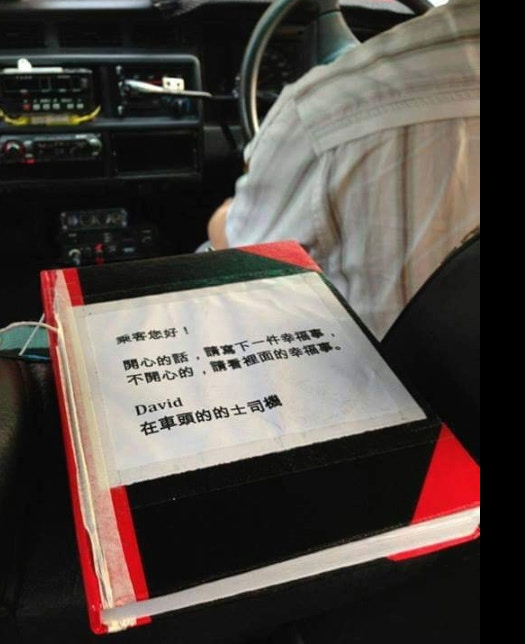 乘客您好！
開心的話，請寫下一件幸福事，
不開心的，請看裡面的幸福事。
David
在車頭的的士司機